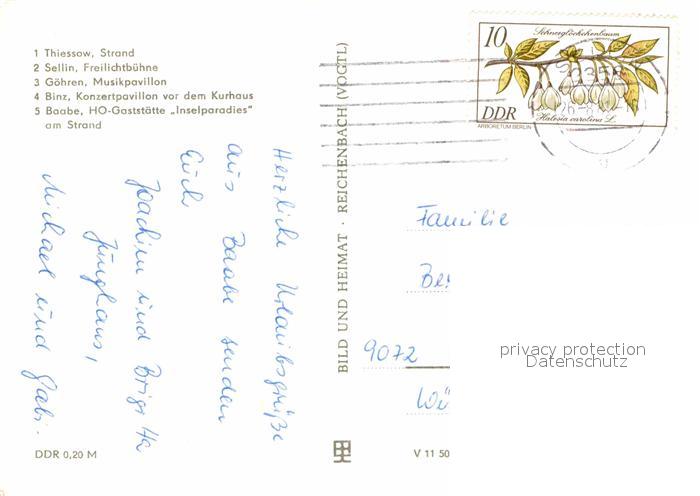 1 Thiessow, Strand
2 Sellin, Freilichtbühne
3 Göhren, Musikpavillon
4 Binz, Konzertpavillon vor dem Kurhaus
5 Baabe, HO-Gaststätte „Inselparadies"
am Strand
Herzliche Urlaubsgrüße
aus Baabe senden
Euch
Joachim und Brigitta
Junghans,
Michael und Gabi.
DDR 0,20 M
BILD UND HEIMAT · REICHENBACH (VOGTL)
V 11 50
10
Schneeglöckchenbaum
DDR
Halesia carolina L.
ARBORETUM BERLIN
Familie
9072
privacy protection
Datenschutz